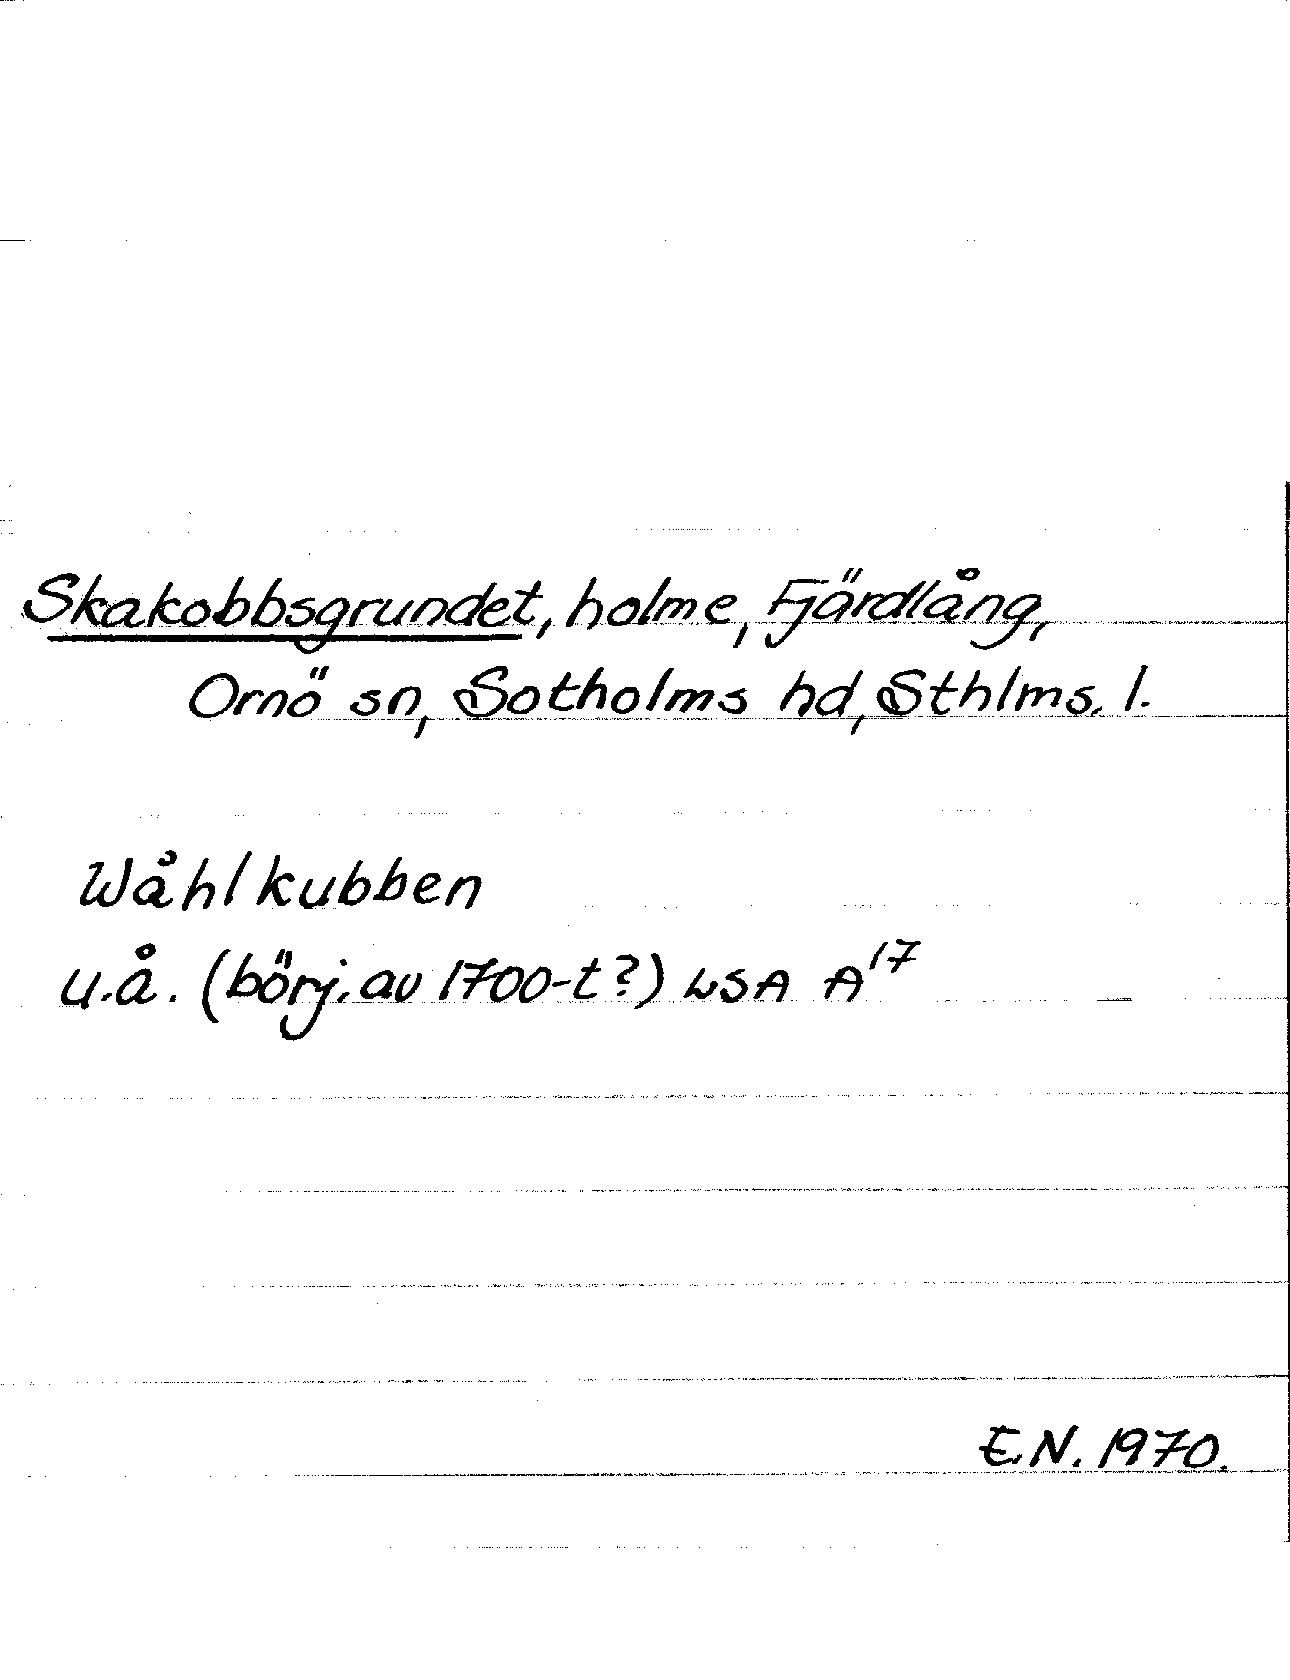 Skakobbsgrundet, holme, Fjärdlång,
Ornö sn, Sotholms hd, Sthlms. l.
Wåhlkubben
u.å. (börj. av 1700-t?) LSA A17
E.N. 1970.